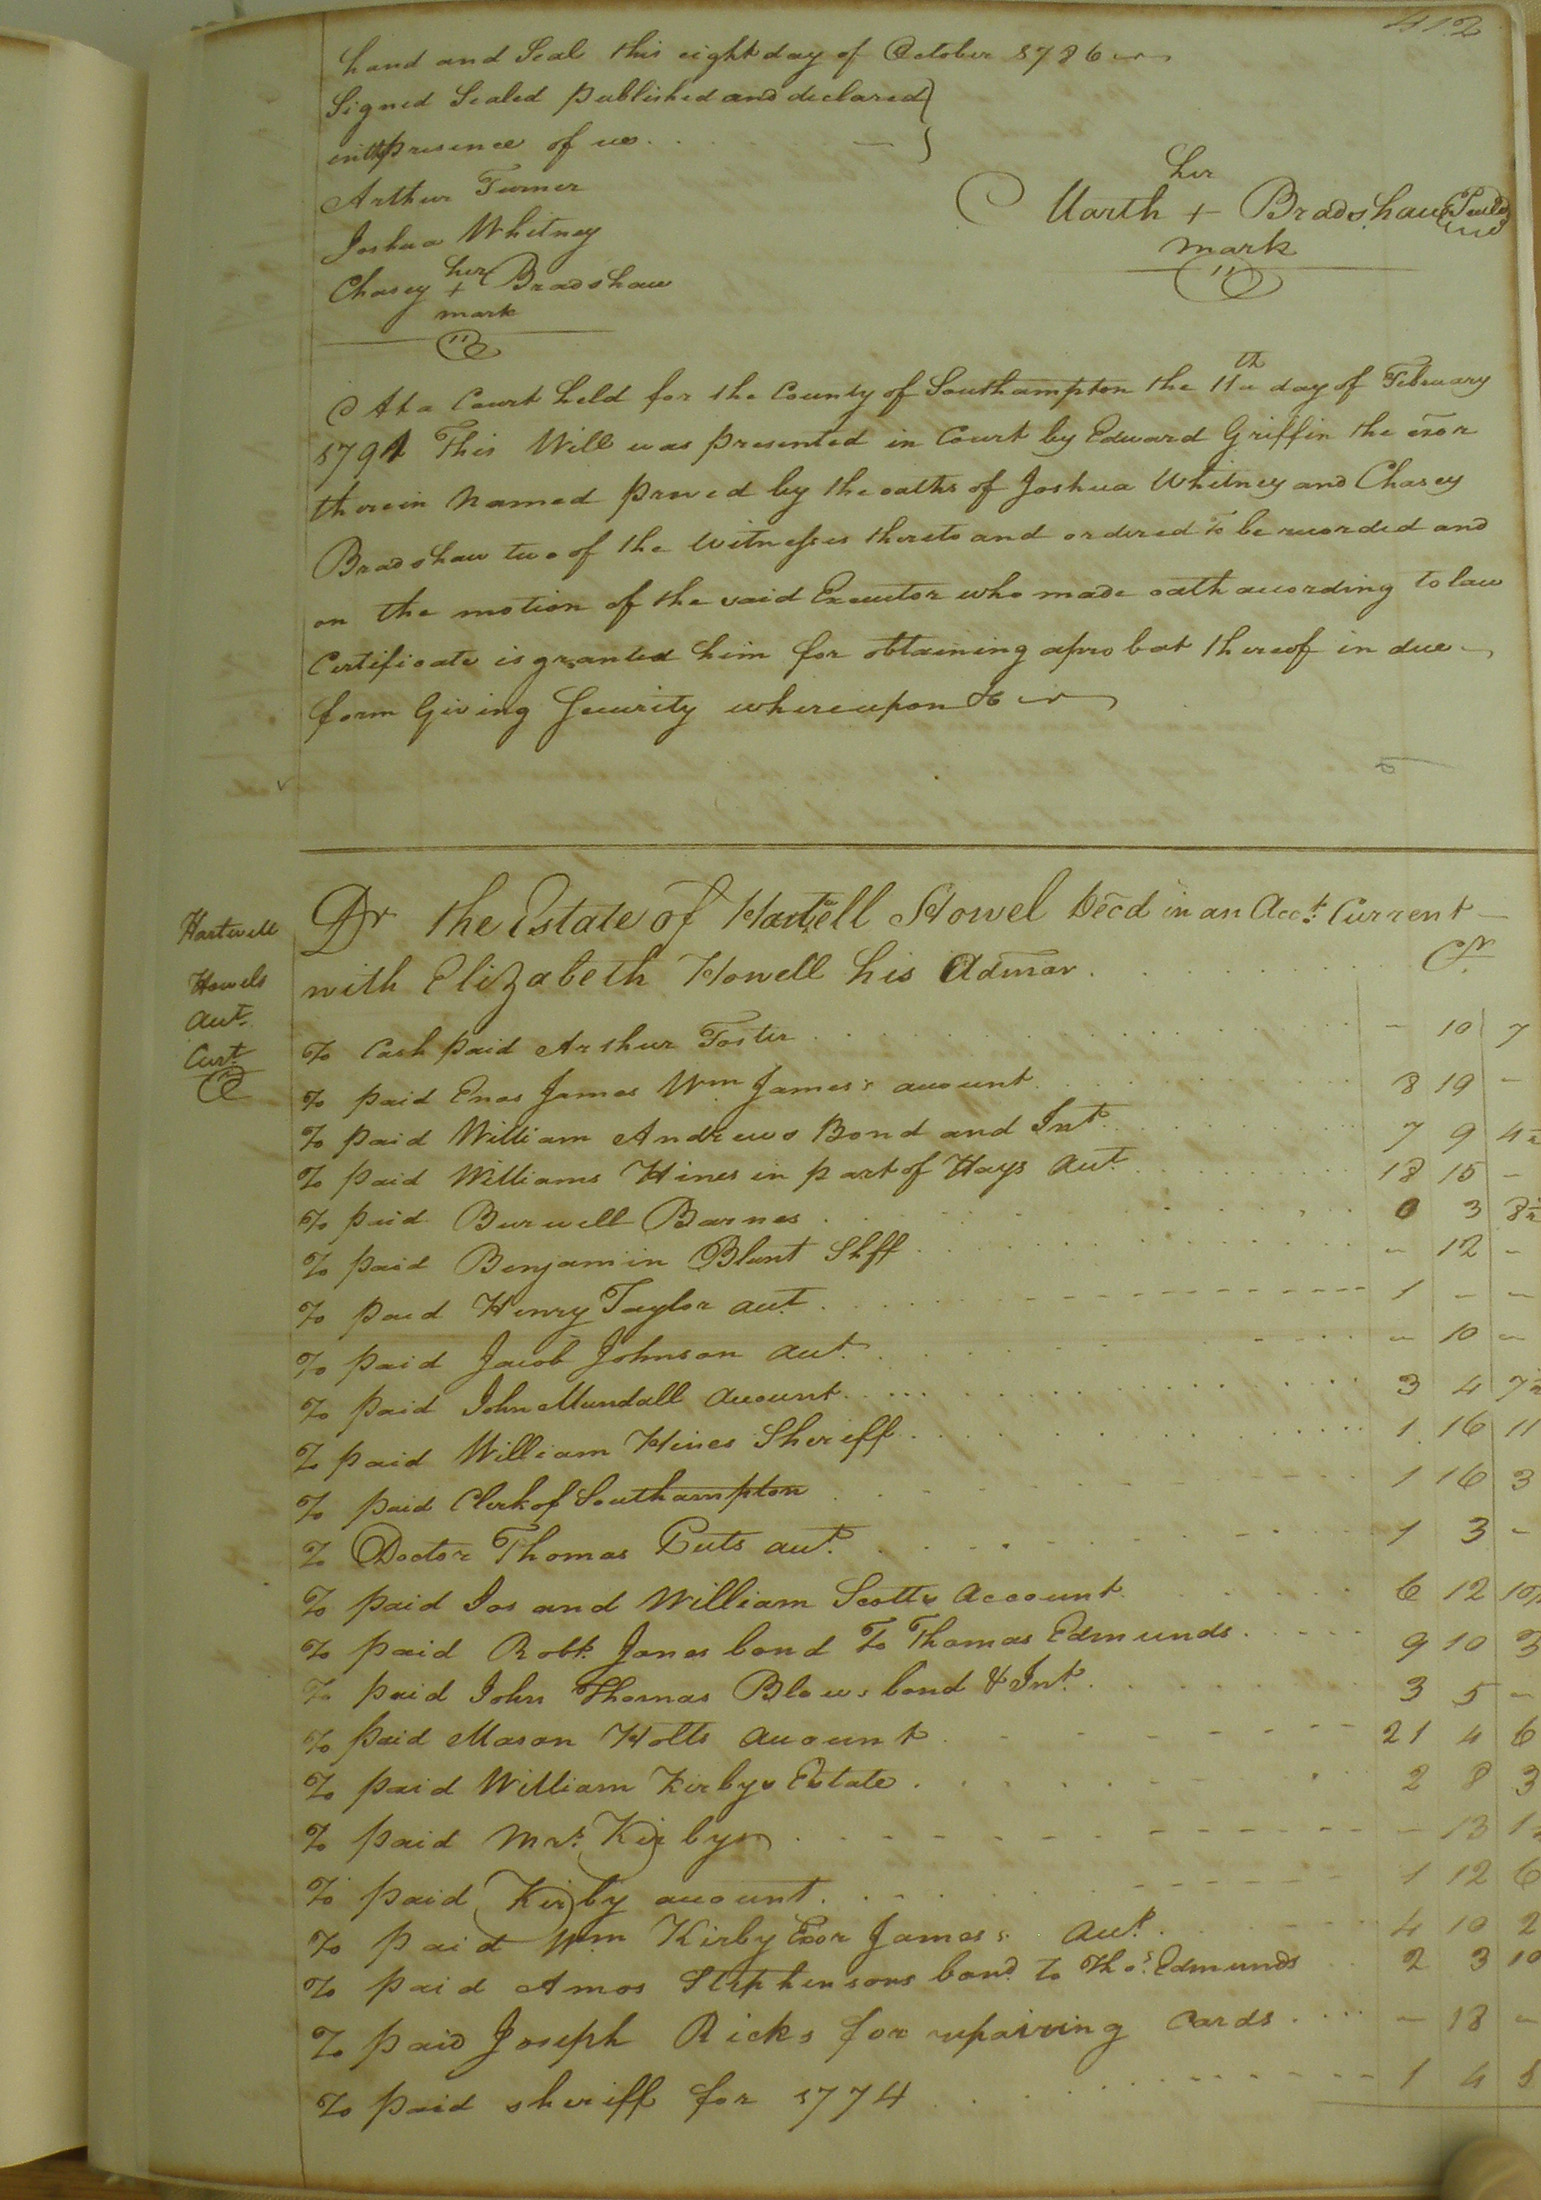 412
hand and Seal this eight day of October 1786
Signed Sealed published and declared
in the presence of us
Arthur Turner
Joshua Whitney
her
Chasey + Bradshaw
mark
her
Marth + Bradshaw (Seal)
mark
At a Court held for the County of Southampton the 11th day of February
1791 This Will was presented in Court by Edward Griffin the exor
therein Named proved by the oaths of Joshua Whitney and Chasey
Bradshaw two of the Witnesses thereto and ordered to be recorded and
on the motion of the said Executor who made oath according to law
Certificate is granted him for obtaining a probat thereof in due
form Giving Security whereupon &
Hartwell
Howels
Acct.
Curt.
Dr the Estate of Hartwell Howel Decd in an Acct. Current
with Elizabeth Howell his Admor Cr.
To Cash paid Arthur Foster - 10 7
To paid Enos James Wm James's account 8 19 -
To paid William Andrews Bond and Int. 7 9 4½
To paid Williams Hines in part of Hays acct. 18 15 -
To paid Burwell Barnes 0 3 8½
To paid Benjamin Blunt Shff - 12 -
To paid Henry Taylor acct. 1 - -
To paid Jacob Johnson acct. - 10 -
To paid John Mundall account 3 4 7½
To paid William Hines Sheriff 1 16 11
To paid Clerk of Southampton 1 16 3
To Doctor Thomas acct. 1 3 -
To paid Jos and William Scotts Account 6 12 10
To paid Robt. Jones bond To Thomas Edmunds 9 10 3
To paid John Thomas Blows bond & Int. 3 5 -
To paid Mason Holts account 21 4 6
To paid William Kirbys Estate 2 8 3
To paid Mrs. Kirby - 13 1½
To paid Kirby account 1 12 6
To paid Wm Kirby Exor James's acct. 4 10 2
To paid Amos Stephensons bond to Thos. Edmunds 2 3 10
To paid Joseph Ricks for repairing Cards - 18 -
To paid sheriff for 1774 1 4 8